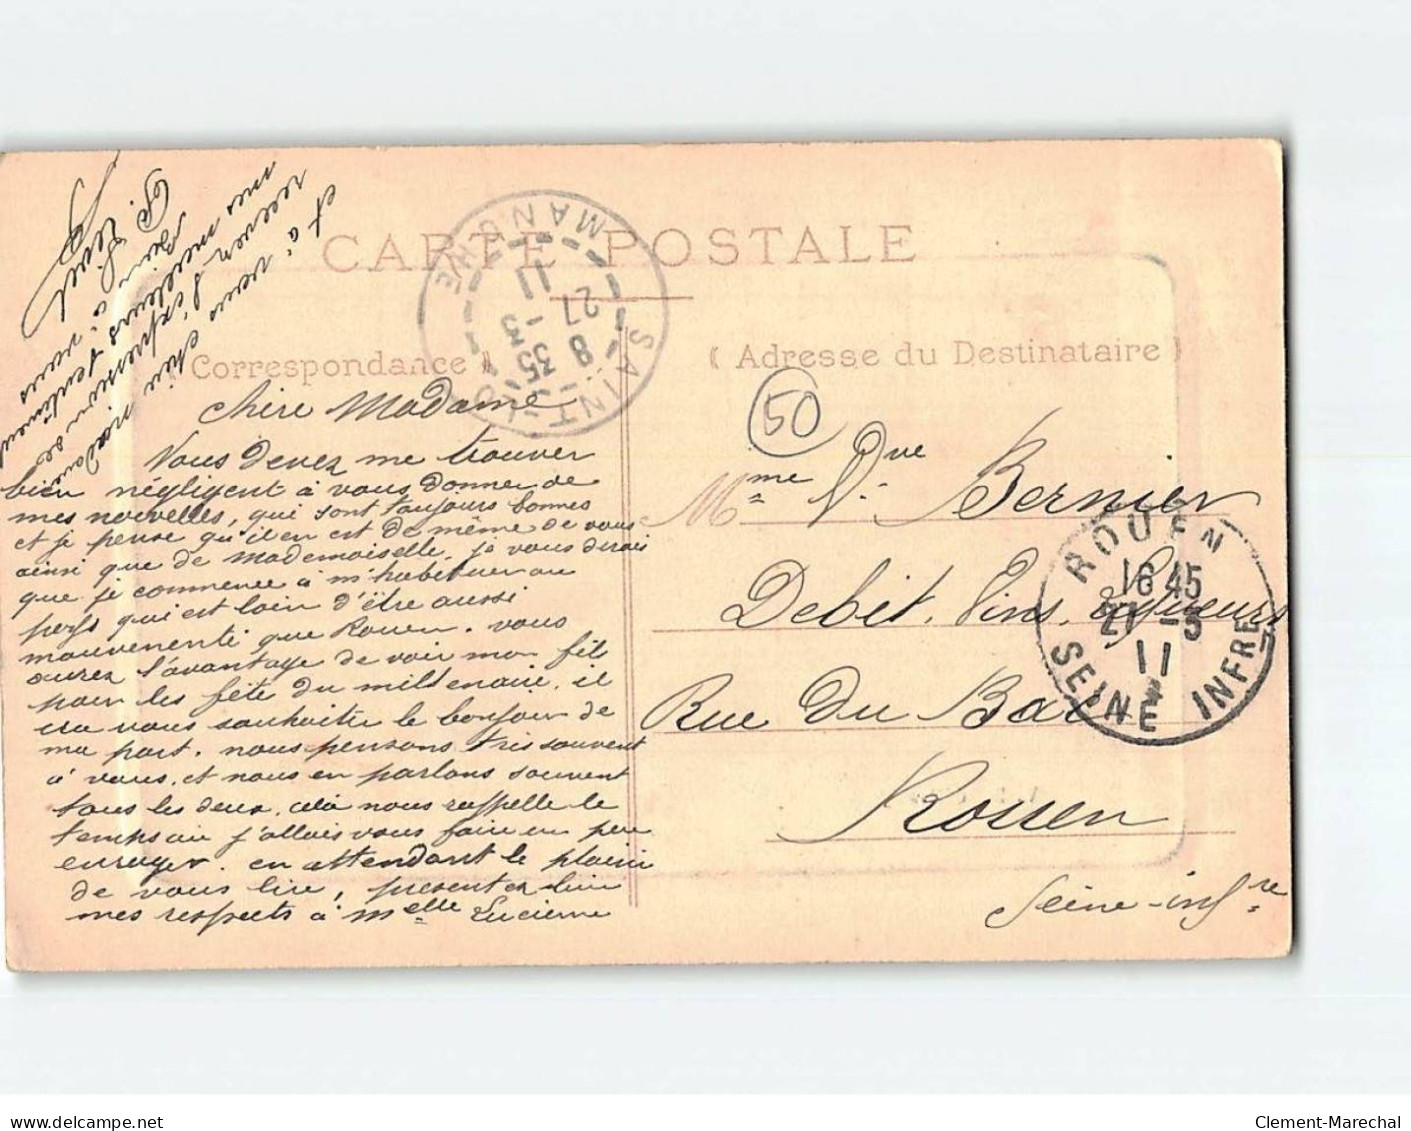 CARTE POSTALE
Correspondance )
( Adresse du Destinataire )
chère Madame
Vous devez me trouver
bien négligent à vous donner de
mes nouvelles, qui sont toujours bonnes
et je pense qu'il en est de même de vous
ainsi que de mademoiselle. je vous dirais
que je commence à m'habituer au
pays qui est loin d'être aussi
mouvementé que Rouen. vous
aurez l'avantage de voir mon fils
pour les fête du millenaire. il
ira vous souhaiter le bonjour de
ma part. nous pensons très souvent
à vous, et nous en parlons souvent
tous les deux. cela nous rappelle le
temps ou j'allais vous faire un peu
enrager. en attendant le plaisir
de vous lire, presentez bien
mes respects à Melle Lucienne
et à vous chère madame
recevez l'expression de
mes meilleurs sentiments
Bien à vous
SAINT-LO
MANCHE
8 35
27 - 3
11
50
Mme Vve Bernier
Debit. Vins. Liqueurs
Rue Du Bac
Rouen
Seine-infre
ROUEN
16 45
21 - 3
11
SEINE INFRE
delcampe.net
Clement-Marechal